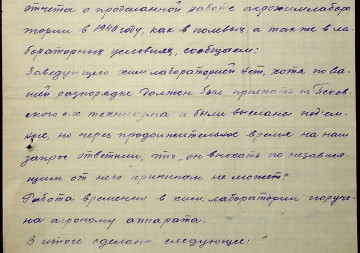 отчета о проделанной работе агрохимлабора-
тории в 1940 году, как в полевых, а также в ла-
бораторных условиях, сообщаем:
Заведующего хим лабораторией нет, хотя по ва-
шей разнорядке должен был приехать из Псков-
ского с-х техникума и были высланы подъем-
ные, но через продолжительное время на наш
запрос ответили, что "он выехать по независя-
щим от него причинам не может"
Работа временно в хим лаборатории поруче-
на агроному аппарата.
В итоге сделано следующее: